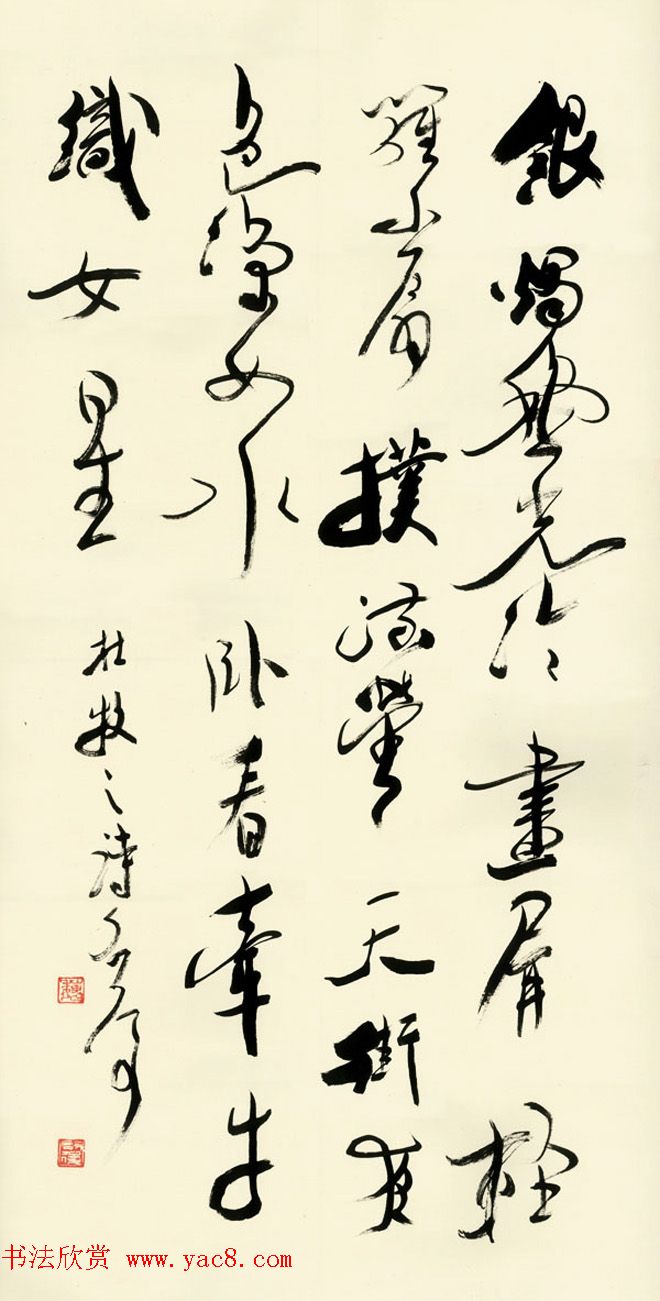 銀燭秋光冷畫屏輕
羅小扇撲流螢天街夜
色涼如水卧看牽牛
織女星 杜牧之詩
书法欣赏 www.yac8.com